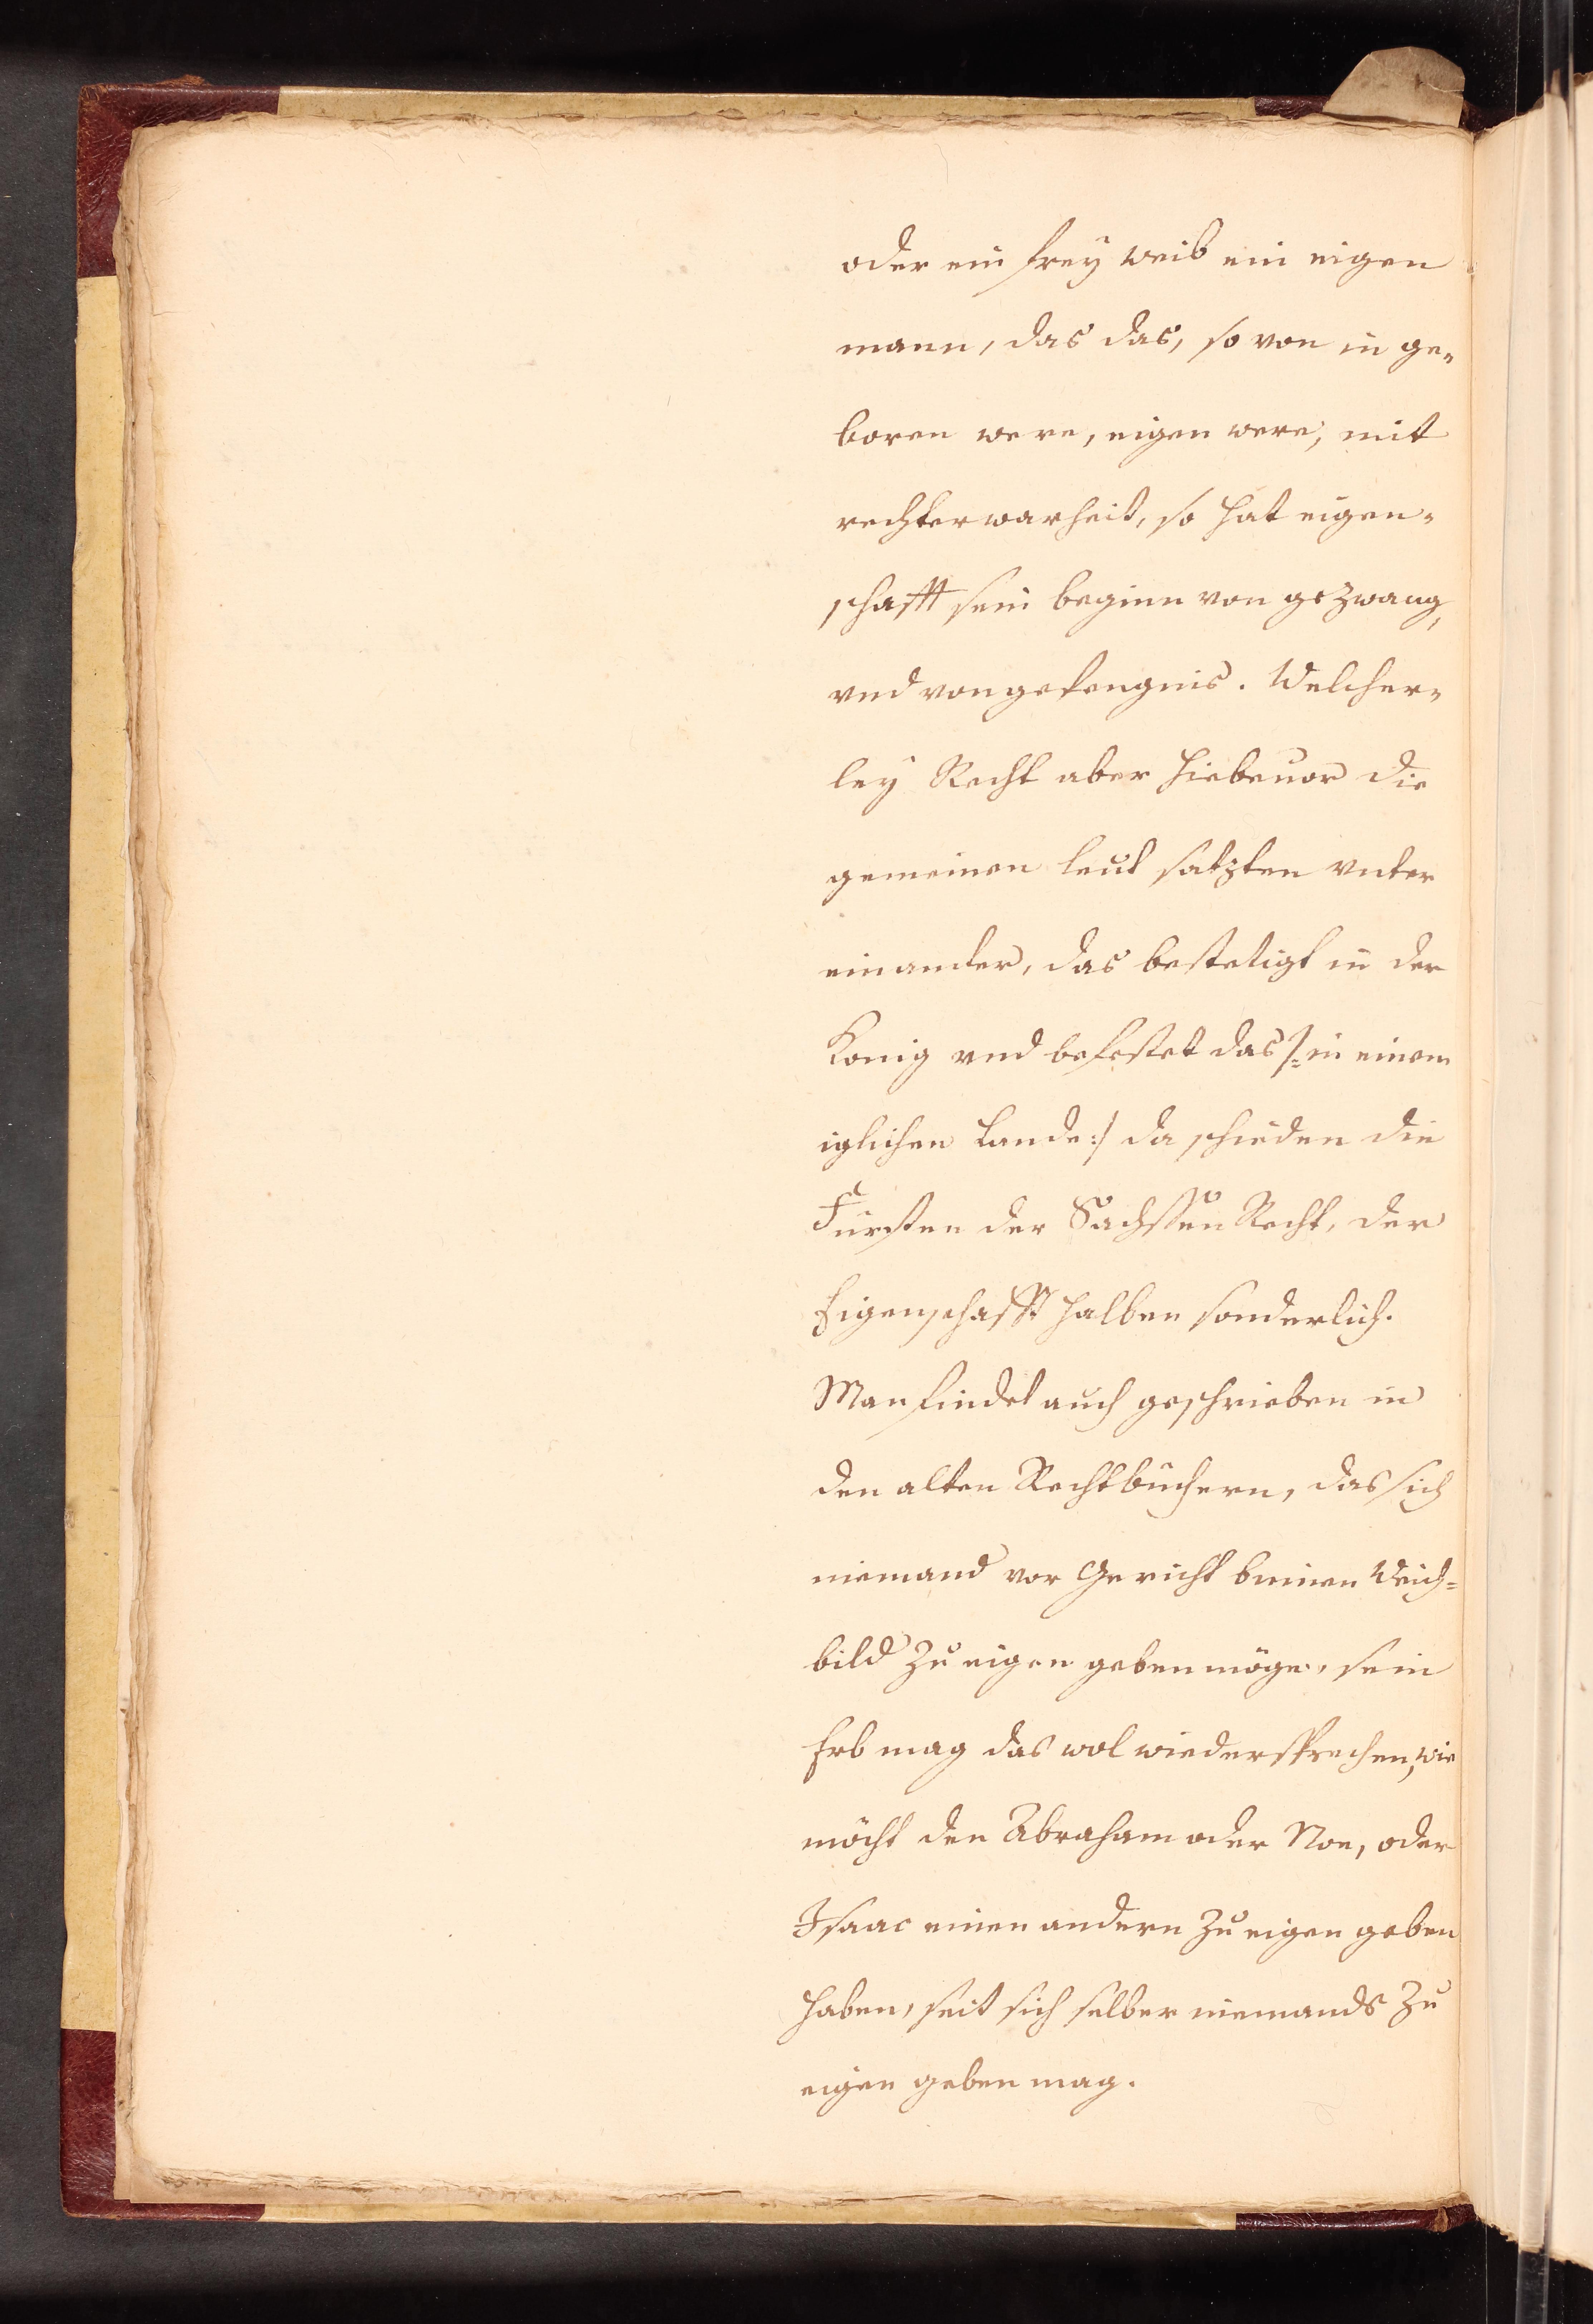 oder ein frey weib ein eigen
mann, das das, so von in ge-
boren were, eigen were, mit
rechter warheit, so hat eigen-
schafft sein beginn von gezwang,
vnd von gefengnis. Welcher-
ley Recht aber hiebeuor die
gemeinen leut satzten vnter
einander, das bestetigt in der
Konig vnd befestet das /: in einem
iglichen Lande :/ da schieden die
Fürsten der Sachssen Recht, der
Eigenschafft halben sonderlich.
Man findet auch geschrieben in
den alten Rechtbüchern, das sich
niemand vor Gericht binnen Weich-
bild zu eigen geben möge, sein
Erb mag das wol wiedersprechen, wie
möcht den Abraham oder Noe, oder
Isaac einen andern zu eigen geben
haben, seit sich selber niemands zu
eigen geben mag.